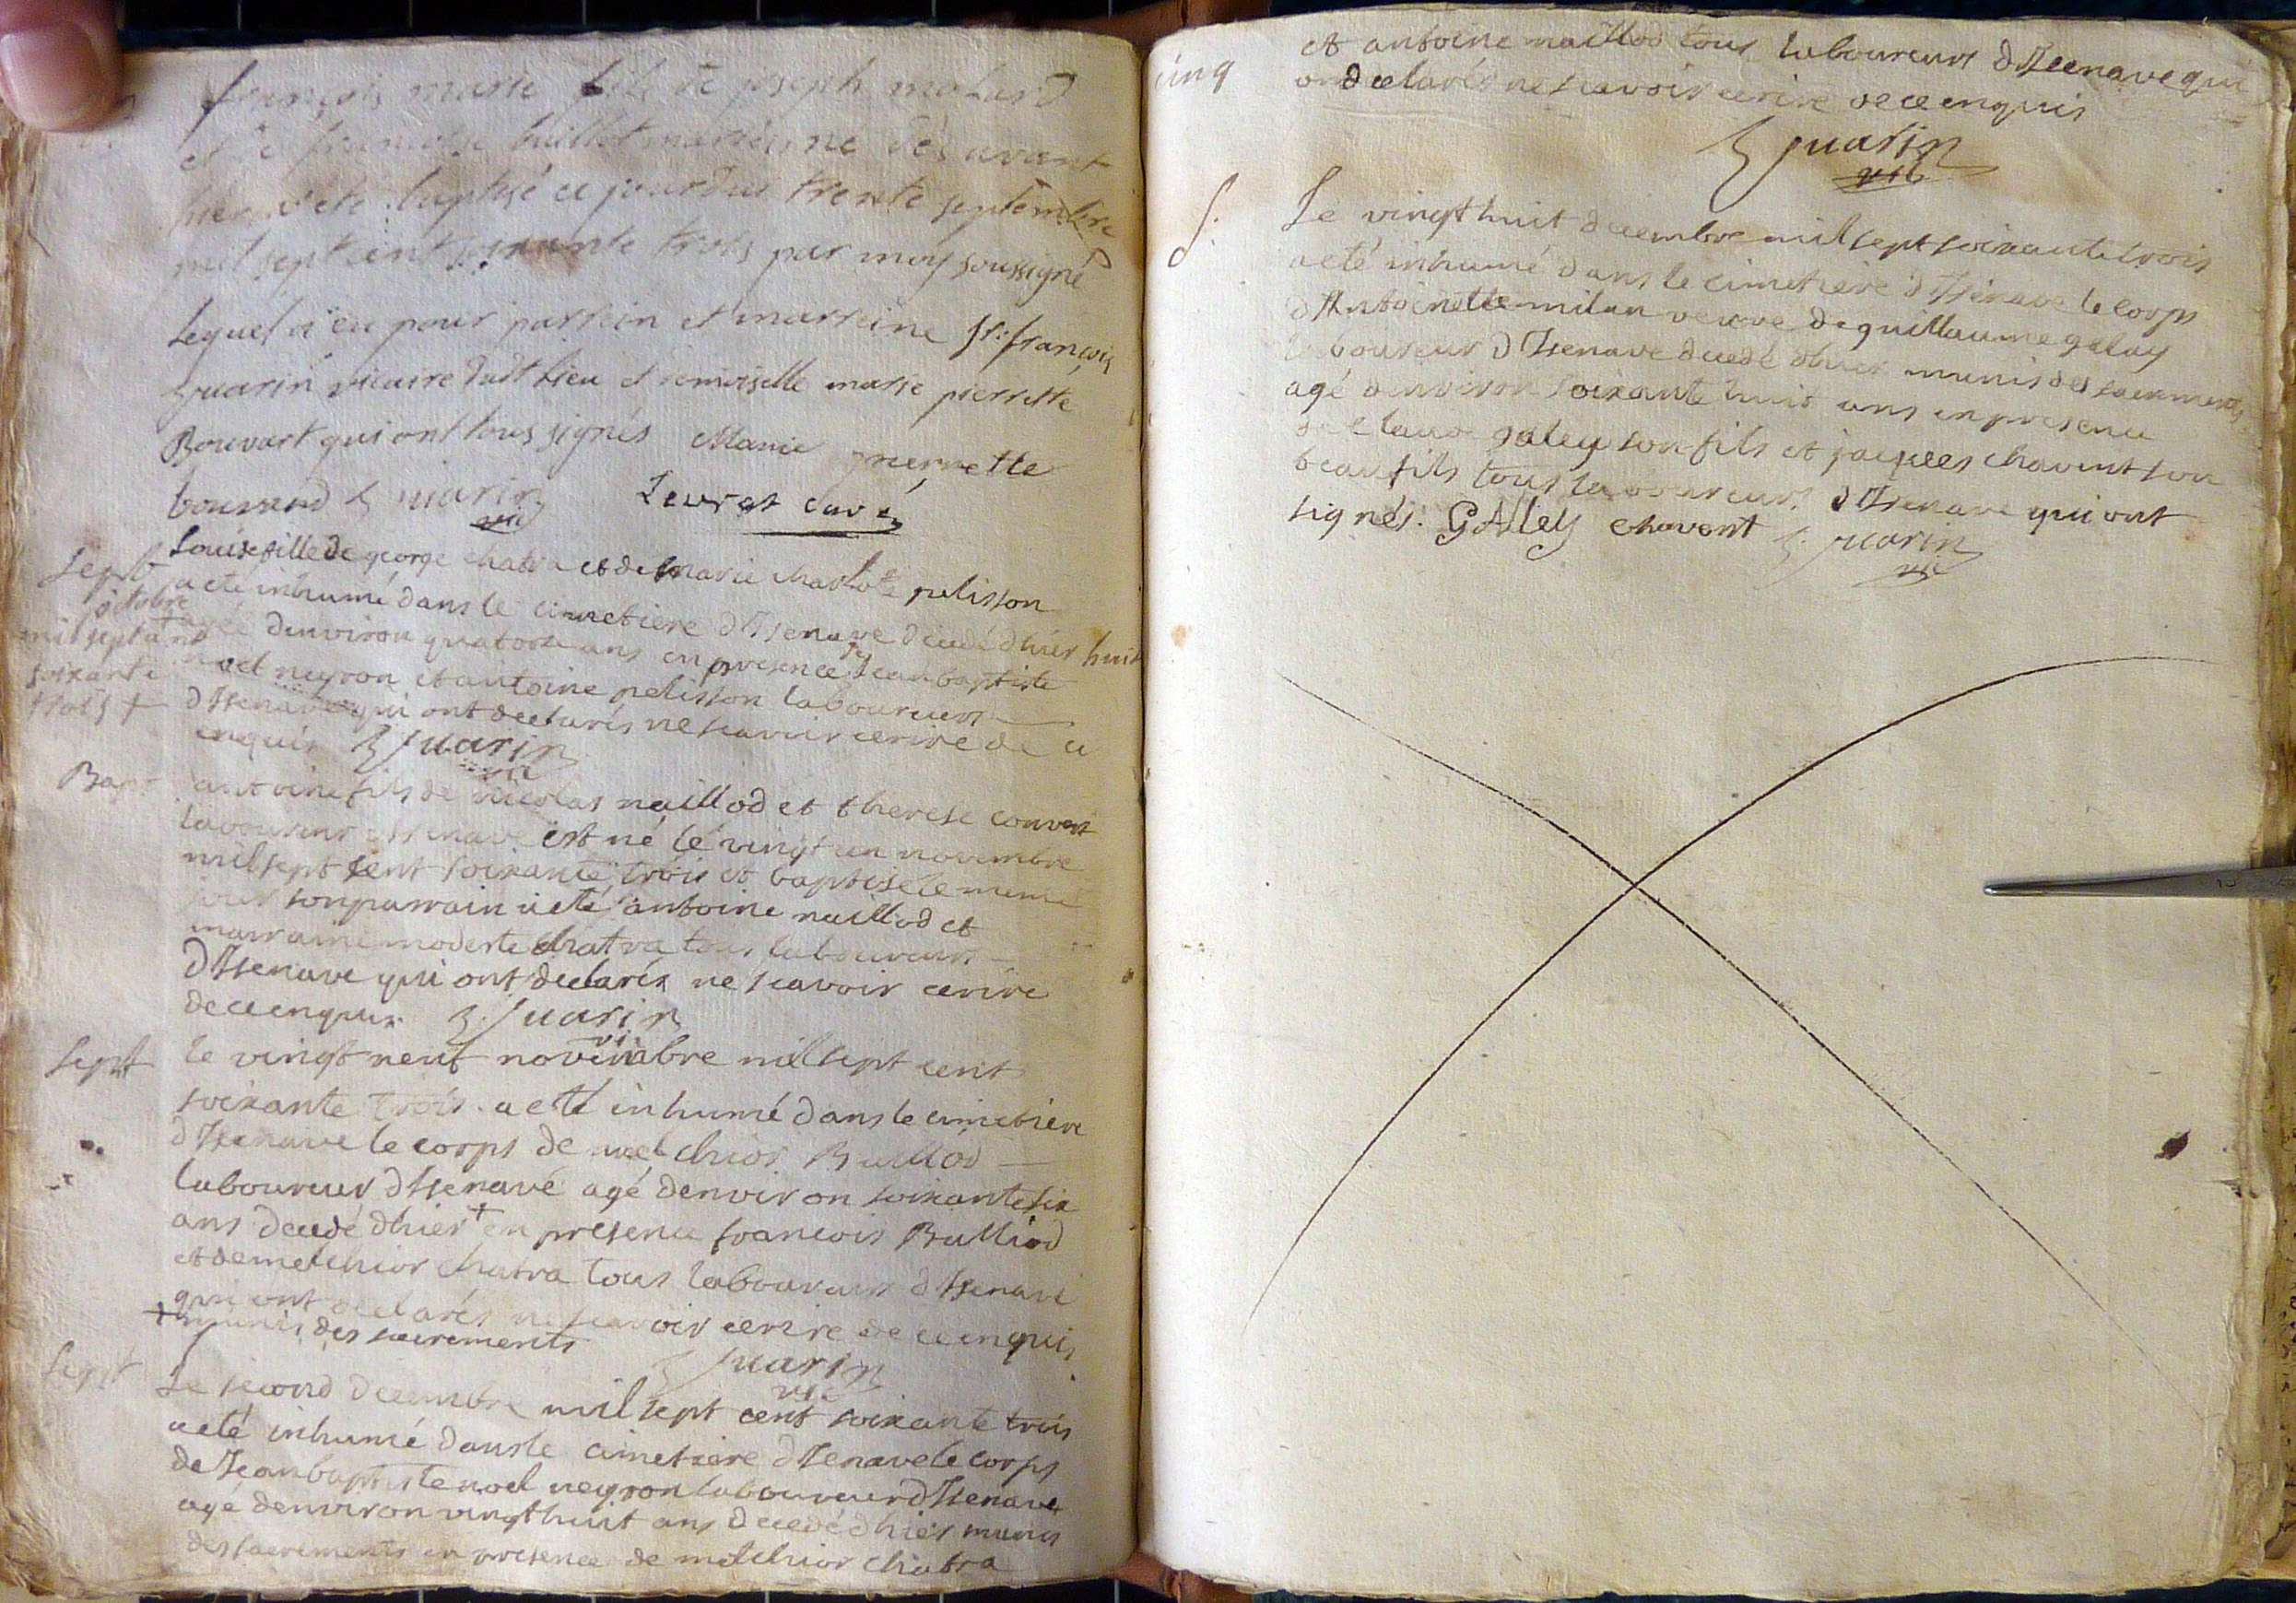 françois marie fils de joseph molard
et de françoise buillot mariés, né dès avant
hier, a été baptisé ce jourd'hui trente septembre
mil sept cent soixante trois par moy soussigné
Lequel a eu pour parrein et marreine Sr. françois
Juarin vicaire dudt lieu et demoiselle marie pierrette
Bouvart qui ont tous signés Marie pierrette
bouvard Juarin vic Levrat curé
Sept
octobre
mil sept cent
soixante
trois +
Louise fille de george chatra et de marie charlote pelisson
a eté inhumé dans le cimetiere d'Isenave decedé d'hier huit
agée denviron quatorze ans en presence de Jean baptiste
noel neyron et antoine pelisson laboureurs
d'Isenave qui ont declarés ne scavoir ecrire de ce
enquis Juarin vic
Bapt
antoine fils de nicolas naillod et therese convert
laboureur d'Isenave est né le vingt un novembre
mil sept cent soixante trois et baptisé le meme
jour son parrain a eté antoine naillod et
marraine modeste chatra tous laboureurs
d'Isenave qui ont declarés ne scavoir ecrire
de ce enquis. Juarin vic
Sept
le vingt neuf novembre mil sept cent
soixante trois a eté inhumé dans le cimetiere
d'Isenave le corps de melchior Bulliod
laboureur d'Isenave agé denviron soixante six
ans decedé d'hier + en presence francois Bulliod
et de melchior chatra tous laboureurs d'Isenave
qui ont declarés ne scavoir ecrire de ce enquis
+ munis des sacrements Juarin vic
Sept
Le second decembre mil sept cent soixante trois
a eté inhumé dans le cimetiere d'Isenave le corps
de Jean baptiste noel neyron laboureur d'Isenave
agé denviron vingt huit ans decedé d'hier munis
des sacrements en presence de melchior chatra
cinq
et antoine naillod tous laboureurs d'Isenave qui
ont declarés ne scavoir ecrire de ce enquis
Juarin vic
S.
Le vingt huit decembre mil sept soixante trois
a eté inhumé dans le cimetiere d'Isenave le corps
d'Antoinette milan veuve de guillaume galay
laboureur d'Isenave decedé d'hier munis des sacrements
agé denviron soixante huit ans en presence
galey son fils et jacques chavent son
beau fils tous laboureurs d'Isenave qui ont
signés. GAlley chavent Juarin
vic